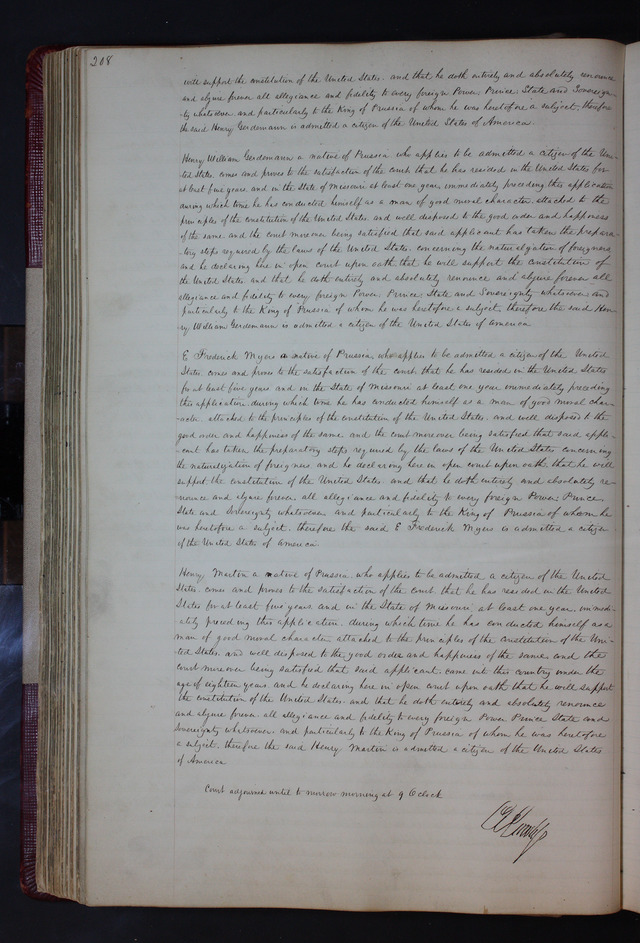 208
will support the constitution of the United States. and that he doth entirely and absolutely renounce
and abjure forever all allegiance and fidelity to every foreign Power, Prince, State and Sovereign-
-ty whatsoever, and particularly to the King of Prussia of whom he was heretofore a subject, therefore
the said Henry Gerdemann is admitted a citizen of the United States of America.
Henry William Gerdemann a native of Prussia who applies to be admitted a citizen of the Uni-
ted States. comes and proves to the satisfaction of the court that he has resided in the United States for
at least five years, and in the State of Missouri at least one year, immediately preceding this application
during which time he has conducted himself as a man of good moral character, attached to the
principles of the constitution of the United States, and well disposed to the good order and happiness
of the same. and the court moreover being satisfied that said applicant has taken the prepara-
-tory steps required by the laws of the United States, concerning the naturalization of foreigners
and he declaring here in open court upon oath that he will support the constitution of
the United States, and that he doth entirely and absolutely renounce and abjure forever all
allegiance and fidelity to every foreign Power, Prince, State and Sovereignty whatsoever and
particularly to the King of Prussia of whom he was heretofore a subject, therefore the said Hen-
ry William Gerdemann is admitted a citizen of the United States of America
E Frederick Myers a native of Prussia, who applies to be admitted a citizen of the United
States. comes and proves to the satisfaction of the court that he has resided in the United States
for at least five years and in the State of Missouri at least one year immediately preceding
this application, during which time he has conducted himself as a man of good moral char-
-acter. attached to the principles of the constitution of the United States. and well disposed to the
good order and happiness of the same. and the court moreover being satisfied that said appli-
-cant has taken the preparatory steps required by the laws of the United States concerning
the naturalization of foreigners and he declaring here in open court upon oath that he will
support the constitution of the United States. and that he doth entirely and absolutely re-
nounce and abjure forever. all allegiance and fidelity to every foreign Power, Prince,
State and Sovereignty whatsoever and particularly to the King of Prussia of whom he
was heretofore a subject. therefore the said E Frederick Myers is admitted a citizen
of the United States of America.
Henry Martin a native of Prussia. who applies to be admitted a citizen of the United
States. comes and proves to the satisfaction of the court that he has resided in the United
States for at least five years and in the State of Missouri at least one year. immedi-
ately preceding this application. during which time he has conducted himself as a
man of good moral character attached to the principles of the constitution of the Uni-
-ted States. and well disposed to the good order and happiness of the same and the
court moreover being satisfied that said applicant. came into this country under the
age of eighteen years. and he declaring here in open court upon oath that he will support
the constitution of the United States. and that he doth entirely and absolutely renounce
and abjure forever. all allegiance and fidelity to every foreign Power Prince State and
Sovereignty whatsoever. and particularly to the King of Prussia of whom he was heretofore
a subject. therefore the said Henry Martin is admitted a citizen of the United States
of America
Court adjourned until to morrow morning at 9 Oclock